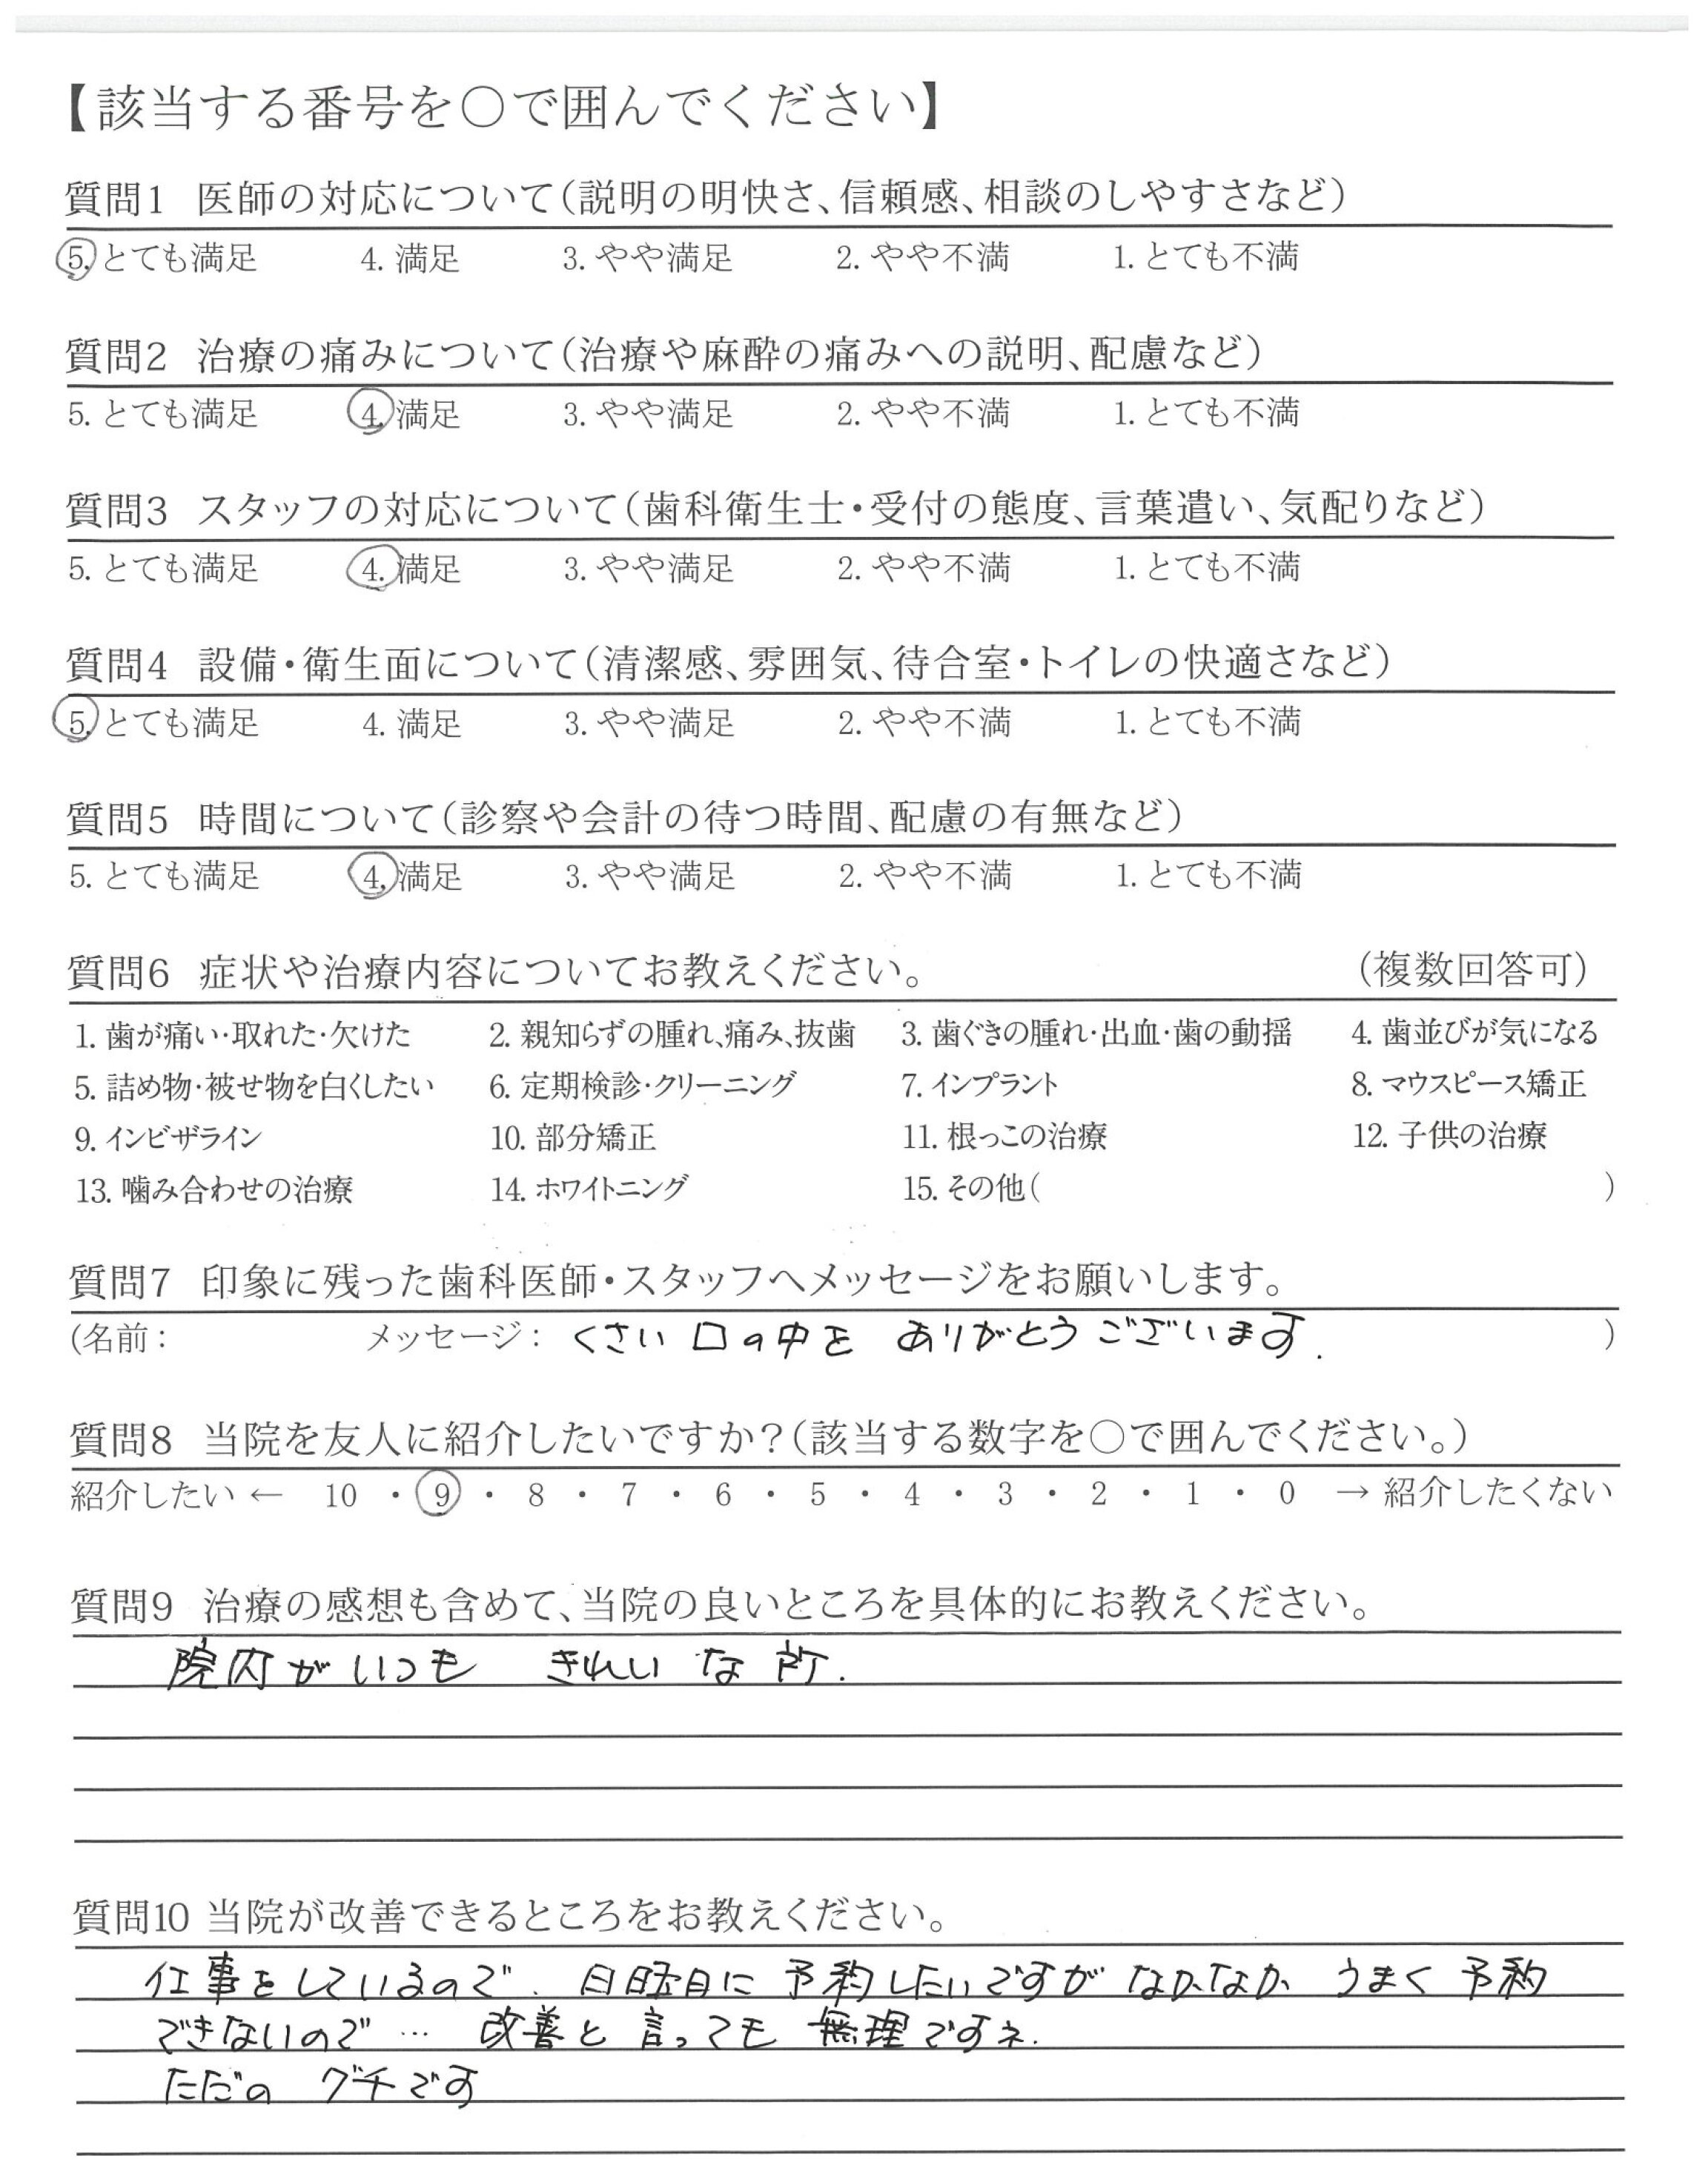 【該当する番号を〇で囲んでください】
質問1 医師の対応について(説明の明快さ、信頼感、相談のしやすさなど)
5. とても満足 4. 満足 3. やや満足 2. やや不満 1. とても不満
質問2 治療の痛みについて(治療や麻酔の痛みへの説明、配慮など)
5. とても満足 4. 満足 3. やや満足 2. やや不満 1. とても不満
質問3 スタッフの対応について(歯科衛生士・受付の態度、言葉遣い、気配りなど)
5. とても満足 4. 満足 3. やや満足 2. やや不満 1. とても不満
質問4 設備・衛生面について(清潔感、雰囲気、待合室・トイレの快適さなど)
5. とても満足 4. 満足 3. やや満足 2. やや不満 1. とても不満
質問5 時間について(診察や会計の待つ時間、配慮の有無など)
5. とても満足 4. 満足 3. やや満足 2. やや不満 1. とても不満
質問6 症状や治療内容についてお教えください。 (複数回答可)
1. 歯が痛い・取れた・欠けた 2. 親知らずの腫れ、痛み、抜歯 3. 歯ぐきの腫れ・出血・歯の動揺 4. 歯並びが気になる
5. 詰め物・被せ物を白くしたい 6. 定期検診・クリーニング 7. インプラント 8. マウスピース矯正
9. インビザライン 10. 部分矯正 11. 根っこの治療 12. 子供の治療
13. 噛み合わせの治療 14. ホワイトニング 15. その他( )
質問7 印象に残った歯科医師・スタッフへメッセージをお願いします。
(名前: メッセージ: くさい 口の中を ありがとうございます. )
質問8 当院を友人に紹介したいですか?(該当する数字を〇で囲んでください。)
紹介したい ← 10 ・ 9 ・ 8 ・ 7 ・ 6 ・ 5 ・ 4 ・ 3 ・ 2 ・ 1 ・ 0 → 紹介したくない
質問9 治療の感想も含めて、当院の良いところを具体的にお教えください。
院内がいつも きれいな所.
質問10 当院が改善できるところをお教えください。
仕事をしているので、日曜日に予約したいですが なかなか うまく予約
できないので… 改善と言っても無理ですネ.
ただの グチです